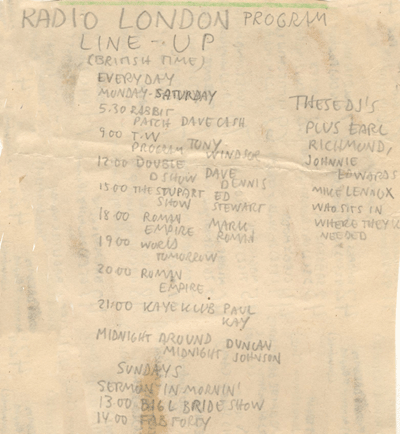 RADIO LONDON PROGRAM
LINE-UP
(BRITISH TIME)
EVERYDAY
MONDAY-SATURDAY
5.30 RABBIT
PATCH DAVE CASH
9.00 T.W
PROGRAM TONY WINDSOR
12.00 DOUBLE
D SHOW DAVE DENNIS
15.00 THE STUPART ED
SHOW STEWART
18.00 ROMAN
EMPIRE MARK ROMAN
19.00 WORLD
TOMORROW
20.00 ROMAN
EMPIRE
21.00 KAYE KLUB PAUL
KAY
MIDNIGHT AROUND DUNCAN
MIDNIGHT JOHNSON
SUNDAYS
SERMON 'IN MORNIN'
13.00 BIG L BRIDE SHOW
14.00 FAB FORTY
THESE DJ'S
PLUS EARL
RICHMOND,
JOHNNIE
EDWARDS
MIKE LENNOX
WHO SITS IN
WHERE THEY'RE
NEEDED